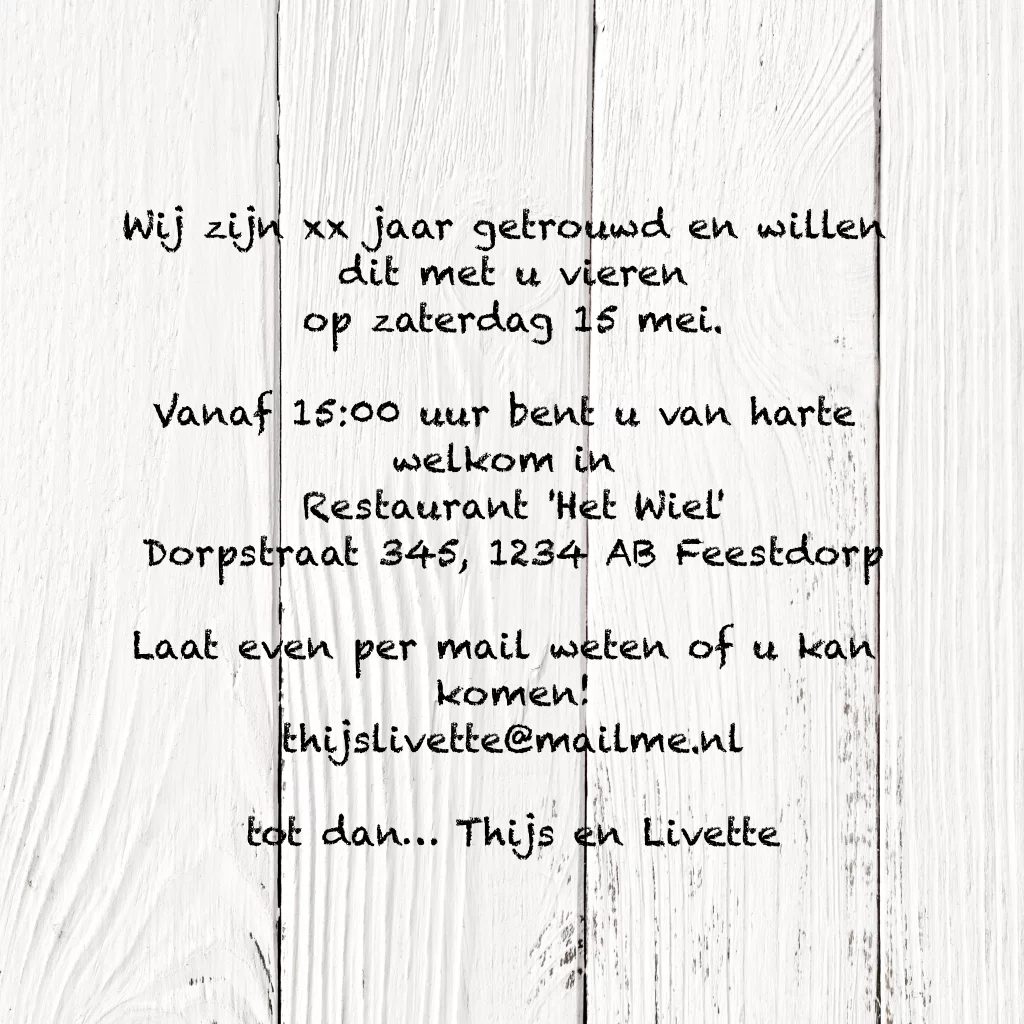 Wij zijn xx jaar getrouwd en willen
dit met u vieren
op zaterdag 15 mei.
Vanaf 15:00 uur bent u van harte
welkom in
Restaurant 'Het Wiel'
Dorpstraat 345, 1234 AB Feestdorp
Laat even per mail weten of u kan
komen!
thijslivette@mailme.nl
tot dan... Thijs en Livette